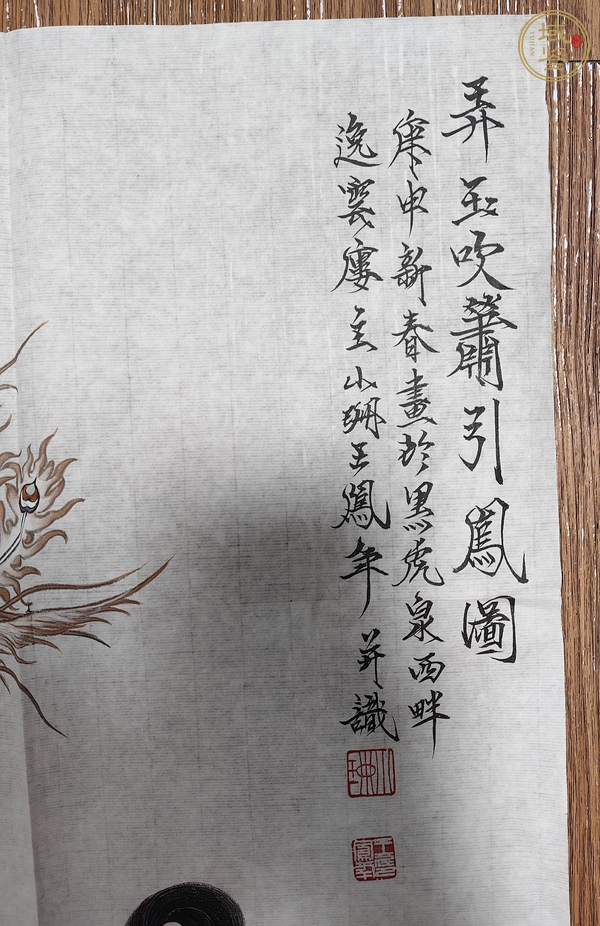 弄玉吹簫引鳳圖
庚申新春畫於黑虎泉西畔
逸裳廔主小珊王鳳年并識
域鉴